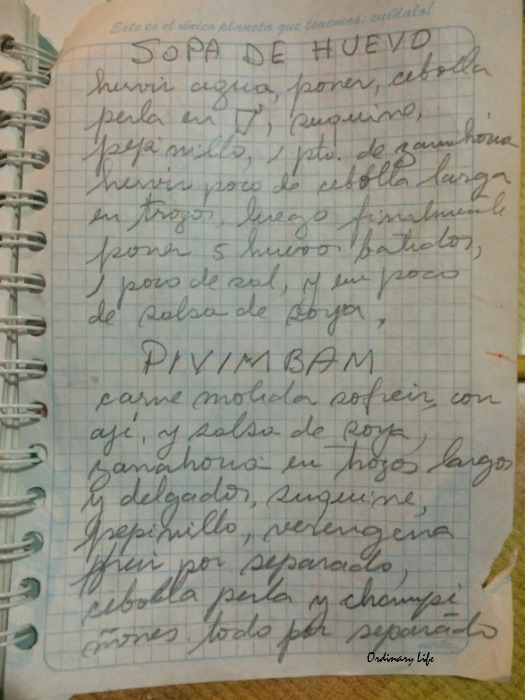 Este es el único planeta que tenemos, cuídalo!
SOPA DE HUEVO
hervir agua, poner, cebolla
perla en □s, suquine,
pepinillo, 1 pto. de zanahoria
hervir poco de cebolla larga
en trozos, luego finalmente
poner 5 huevos batidos,
1 poco de sal, y un poco
de salsa de soya,
PIVIMBAM
carne molida sofreir, con
ají, y salsa de soya,
zanahoria en trozos largos
y delgados, suquine,
pepinillo, verengena
freir por separado,
cebolla perla y champi
ñones todo por separado
Ordinary Life